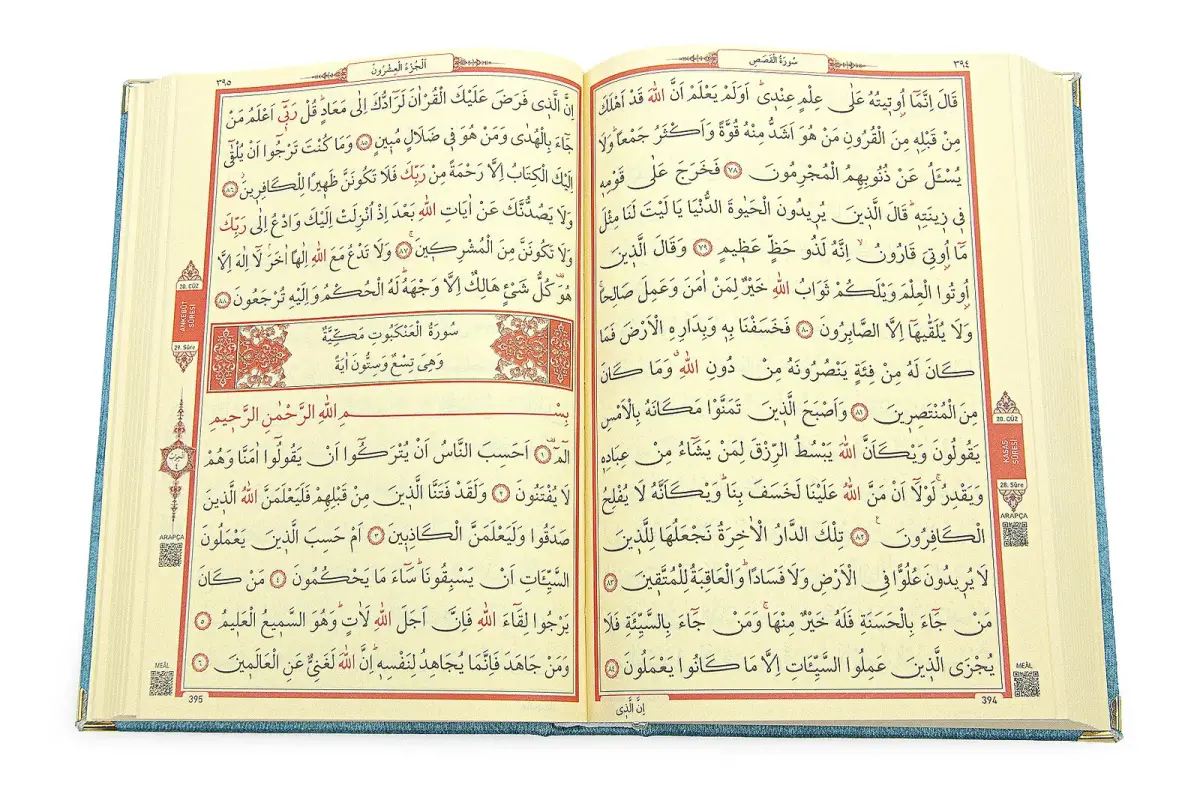 ٣٩٤
سُورَةُ الْقَصَصِ
قَالَ اِنَّمَٓا اُو۫ت۪يتُهُ عَلٰى عِلْمٍ عِنْد۪يۜ اَوَلَمْ يَعْلَمْ اَنَّ اللّٰهَ قَدْ اَهْلَكَ
مِنْ قَبْلِه۪ مِنَ الْقُرُونِ مَنْ هُوَ اَشَدُّ مِنْهُ قُوَّةً وَاَكْثَرُ جَمْعًاۜ وَلَا
يُسْـَٔلُ عَنْ ذُنُوبِهِمُ الْمُجْرِمُونَ ﴿٧٨﴾ فَخَرَجَ عَلٰى قَوْمِه۪
ف۪ي ز۪ينَتِه۪ۜ قَالَ الَّذ۪ينَ يُر۪يدُونَ الْحَيٰوةَ الدُّنْيَا يَا لَيْتَ لَنَا مِثْلَ
مَٓا اُو۫تِيَ قَارُونُۙ اِنَّهُ لَذُو حَظٍّ عَظ۪يمٍ ﴿٧٩﴾ وَقَالَ الَّذ۪ينَ
اُو۫تُوا الْعِلْمَ وَيْلَكُمْ ثَوَابُ اللّٰهِ خَيْرٌ لِمَنْ اٰمَنَ وَعَمِلَ صَالِحًاۚ
وَلَا يُلَقّٰيهَٓا اِلَّا الصَّابِرُونَ ﴿٨٠﴾ فَخَسَفْنَا بِه۪ وَبِدَارِهِ الْاَرْضَ فَمَا
كَانَ لَهُ مِنْ فِئَةٍ يَنْصُرُونَهُ مِنْ دُونِ اللّٰهِۗ وَمَا كَانَ
مِنَ الْمُنْتَصِر۪ينَ ﴿٨١﴾ وَاَصْبَحَ الَّذ۪ينَ تَمَنَّوْا مَكَانَهُ بِالْاَمْسِ
يَقُولُونَ وَيْكَاَنَّ اللّٰهَ يَبْسُطُ الرِّزْقَ لِمَنْ يَشَٓاءُ مِنْ عِبَادِه۪
وَيَقْدِرُۚ لَوْلَٓا اَنْ مَنَّ اللّٰهُ عَلَيْنَا لَخَسَفَ بِنَاۜ وَيْكَاَنَّهُ لَا يُفْلِحُ
الْكَافِرُونَ۟ ﴿٨٢﴾ تِلْكَ الدَّارُ الْاٰخِرَةُ نَجْعَلُهَا لِلَّذ۪ينَ
لَا يُر۪يدُونَ عُلُوًّا فِي الْاَرْضِ وَلَا فَسَادًاۜ وَالْعَاقِبَةُ لِلْمُتَّق۪ينَ ﴿٨٣﴾
مَنْ جَٓاءَ بِالْحَسَنَةِ فَلَهُ خَيْرٌ مِنْهَاۚ وَمَنْ جَٓاءَ بِالسَّيِّئَةِ فَلَا
يُجْزَى الَّذ۪ينَ عَمِلُوا السَّيِّـَٔاتِ اِلَّا مَا كَانُوا يَعْمَلُونَ ﴿٨٤﴾
20. CÜZ
KASAS SÛRESİ
28. Sûre
ARAPÇA
MEÂL
394
اِنَّ الَّذ۪ي
٣٩٥
اَلْجُزْءُ الْعِشْرُونَ
اِنَّ الَّذ۪ي فَرَضَ عَلَيْكَ الْقُرْاٰنَ لَرَٓادُّكَ اِلٰى مَعَادٍۜ قُلْ رَبّ۪ٓي اَعْلَمُ مَنْ
جَٓاءَ بِالْهُدٰى وَمَنْ هُوَ ف۪ي ضَلَالٍ مُب۪ينٍ ﴿٨٥﴾ وَمَا كُنْتَ تَرْجُٓوا اَنْ يُلْقٰٓى
اِلَيْكَ الْكِتَابُ اِلَّا رَحْمَةً مِنْ رَبِّكَ فَلَا تَكُونَنَّ ظَه۪يرًا لِلْكَافِر۪ينَۘ ﴿٨٦﴾
وَلَا يَصُدُّنَّكَ عَنْ اٰيَاتِ اللّٰهِ بَعْدَ اِذْ اُنْزِلَتْ اِلَيْكَ وَادْعُ اِلٰى رَبِّكَ
وَلَا تَكُونَنَّ مِنَ الْمُشْرِك۪ينَۚ ﴿٨٧﴾ وَلَا تَدْعُ مَعَ اللّٰهِ اِلٰهًا اٰخَرَۢ لَٓا اِلٰهَ اِلَّا
هُوَ۠ كُلُّ شَيْءٍ هَالِكٌ اِلَّا وَجْهَهُۜ لَهُ الْحُكْمُ وَاِلَيْهِ تُرْجَعُونَ ﴿٨٨﴾
سُورَةُ الْعَنْكَبُوتِ مَكِّيَّةٌ
وَهِيَ تِسْعٌ وَسِتُّونَ اٰيَةً
بِسْمِ اللّٰهِ الرَّحْمٰنِ الرَّح۪يمِ
الٓمٓۚ ﴿١﴾ اَحَسِبَ النَّاسُ اَنْ يُتْرَكُٓوا اَنْ يَقُولُٓوا اٰمَنَّا وَهُمْ
لَا يُفْتَنُونَ ﴿٢﴾ وَلَقَدْ فَتَنَّا الَّذ۪ينَ مِنْ قَبْلِهِمْ فَلَيَعْلَمَنَّ اللّٰهُ الَّذ۪ينَ
صَدَقُوا وَلَيَعْلَمَنَّ الْكَاذِب۪ينَ ﴿٣﴾ اَمْ حَسِبَ الَّذ۪ينَ يَعْمَلُونَ
السَّيِّـَٔاتِ اَنْ يَسْبِقُونَاۜ سَٓاءَ مَا يَحْكُمُونَ ﴿٤﴾ مَنْ كَانَ
يَرْجُوا لِقَٓاءَ اللّٰهِ فَاِنَّ اَجَلَ اللّٰهِ لَاٰتٍۜ وَهُوَ السَّم۪يعُ الْعَل۪يمُ ﴿٥﴾
وَمَنْ جَاهَدَ فَاِنَّمَا يُجَاهِدُ لِنَفْسِه۪ۜ اِنَّ اللّٰهَ لَغَنِيٌّ عَنِ الْعَالَم۪ينَ ﴿٦﴾
20. CÜZ
ANKEBÛT SÛRESİ
29. Sûre
ARAPÇA
MEÂL
395